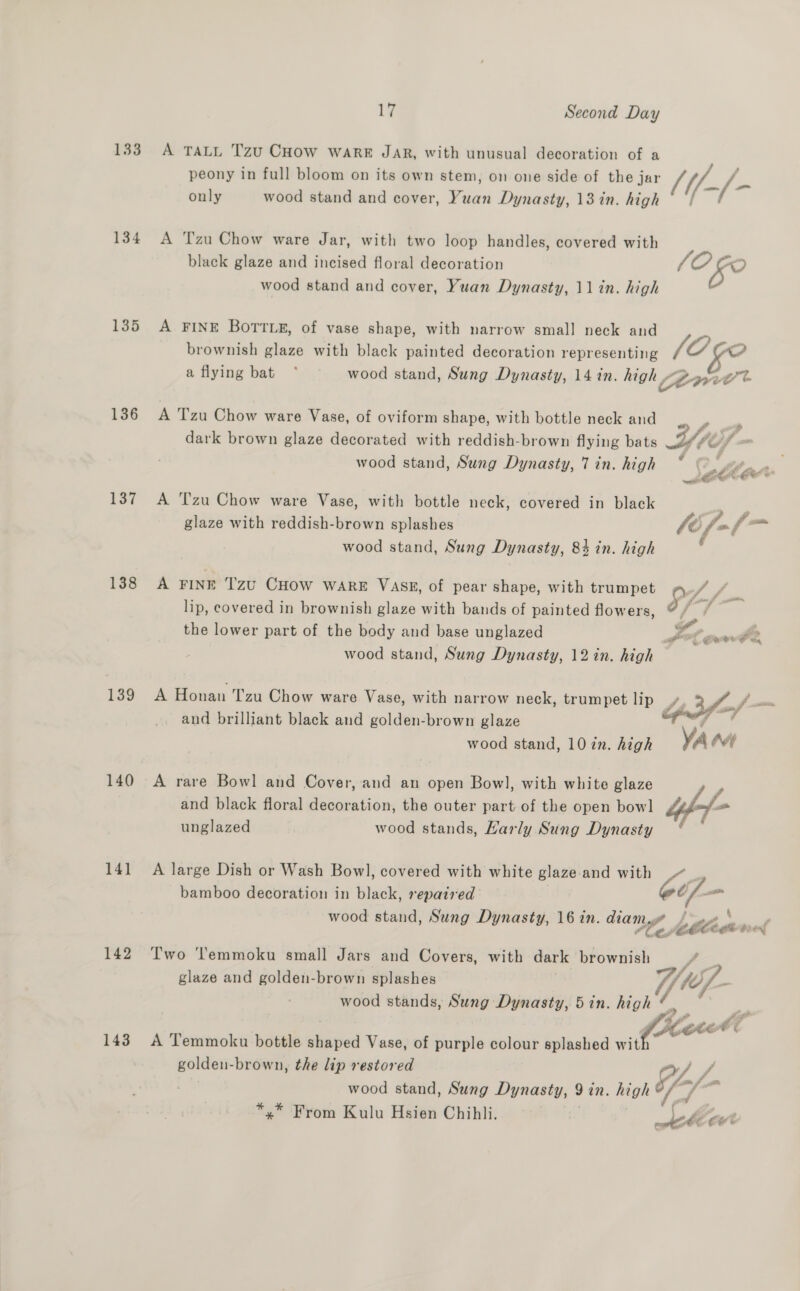 17 Second Day
133 A TALL TZU CHOW WARE JAR, with unusual decoration of a
peony in full bloom on its own stem, on one side of the jar
only wood stand and cover, Yuan Dynasty, 13 in. high
134 A Tzu Chow ware Jar, with two loop handles, covered with
black glaze and incised floral decoration
wood stand and cover, Yuan Dynasty, 11 in. high
135 A FINE BOTTLE, of vase shape, with narrow small neck and
brownish glaze with black painted decoration representing
a flying bat wood stand, Sung Dynasty, 14 in. high
136 A Tzu Chow ware Vase, of oviform shape, with bottle neck and
dark brown glaze decorated with reddish-brown flying bats
wood stand, Sung Dynasty, 7 in. high
137 A Tzu Chow ware Vase, with bottle neck, covered in black
glaze with reddish-brown splashes
wood stand, Sung Dynasty, 8½ in. high
138 A FINE TZU CHOW WARE VASE, of pear shape, with trumpet
lip, covered in brownish glaze with bands of painted flowers,
the lower part of the body and base unglazed
wood stand, Sung Dynasty, 12 in. high
139 A Honan Tzu Chow ware Vase, with narrow neck, trumpet lip
and brilliant black and golden-brown glaze
wood stand, 10 in. high YAM
140 A rare Bowl and Cover, and an open Bowl, with white glaze
and black floral decoration, the outer part of the open bowl
unglazed wood stands, Early Sung Dynasty
141 A large Dish or Wash Bowl, covered with white glaze and with
bamboo decoration in black, repaired
wood stand, Sung Dynasty, 16 in. diam.
142 Two Temmoku small Jars and Covers, with dark brownish
glaze and golden-brown splashes
wood stands, Sung Dynasty, 5 in. high
143 A Temmoku bottle shaped Vase, of purple colour splashed with
golden-brown, the lip restored
wood stand, Sung Dynasty, 9 in. high
*⁎* From Kulu Hsien Chihli.